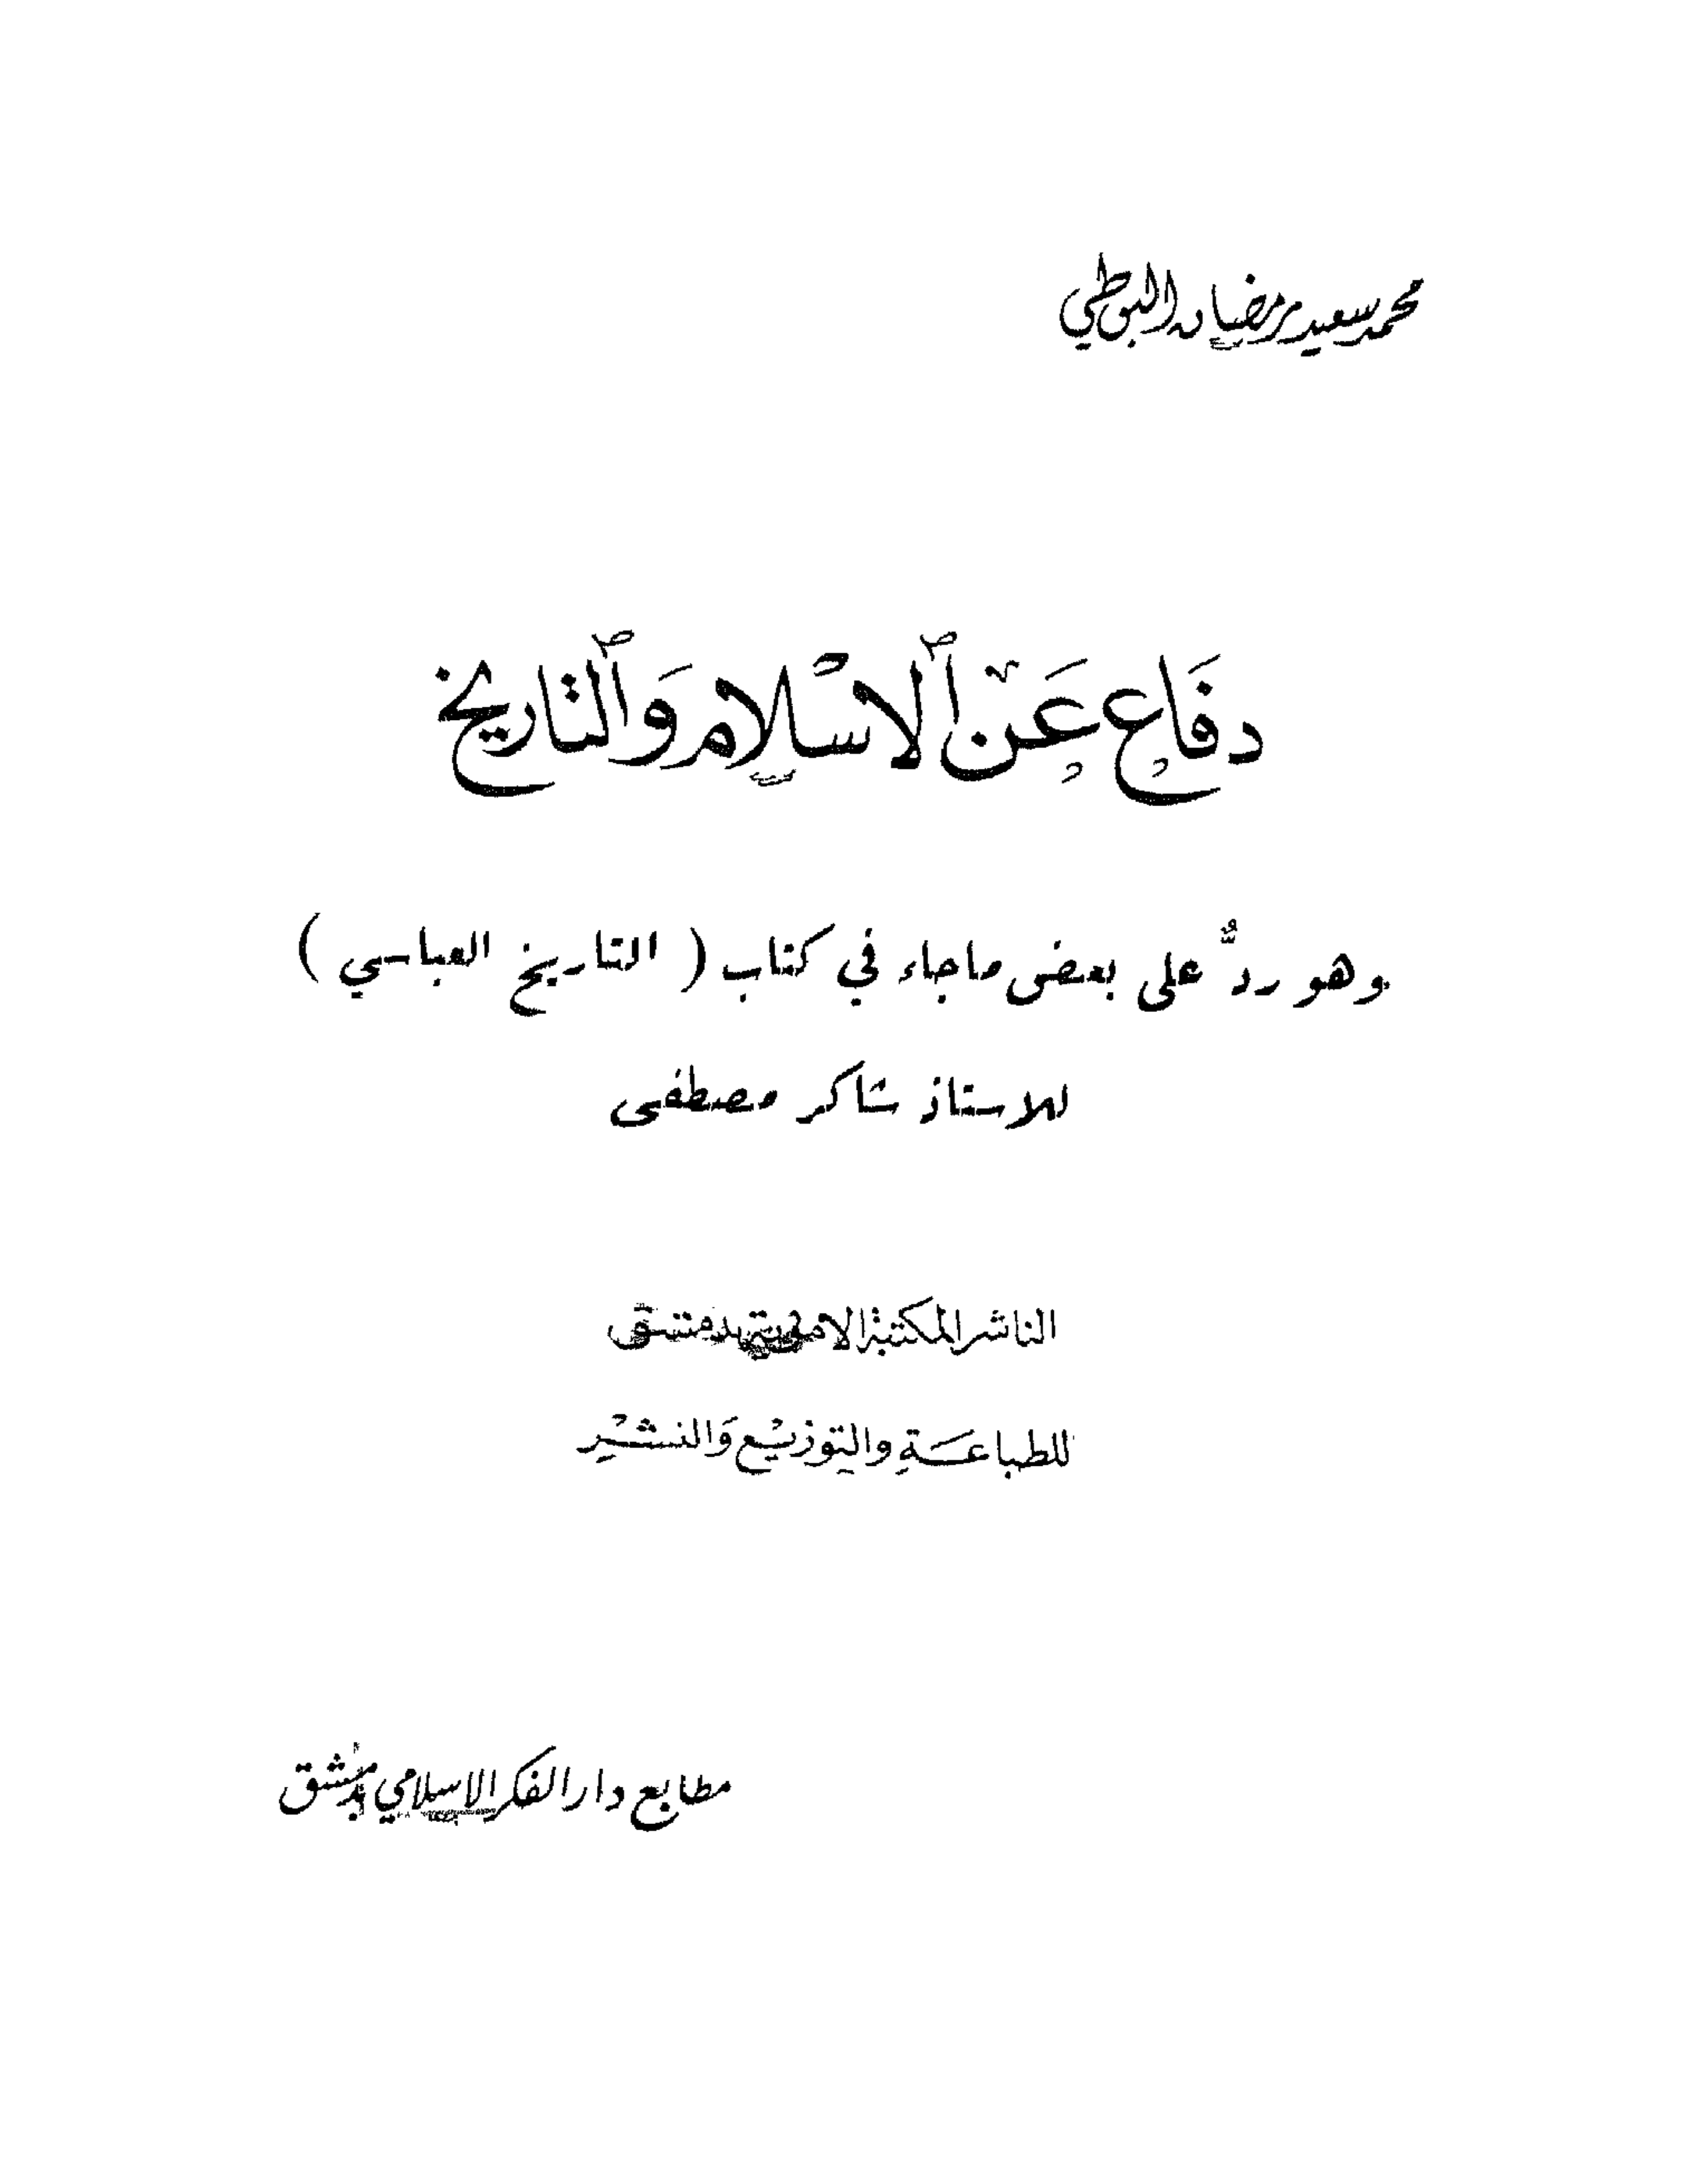 محمد سعيد رمضان البوطي
دفَاع عَنْ ٱلاسْلام وَٱلتاريخ
وهو ردٌّ على بعض ماجاء في كتاب ( التاريخ العباسي )
للاستاذ شاكر مصطفى
الناشر المكتبة الاموية بدمشق
للطباعَةِ والتوزيْع وَالنشْر
مطابع دار الفكر الاسلامي بدمشق